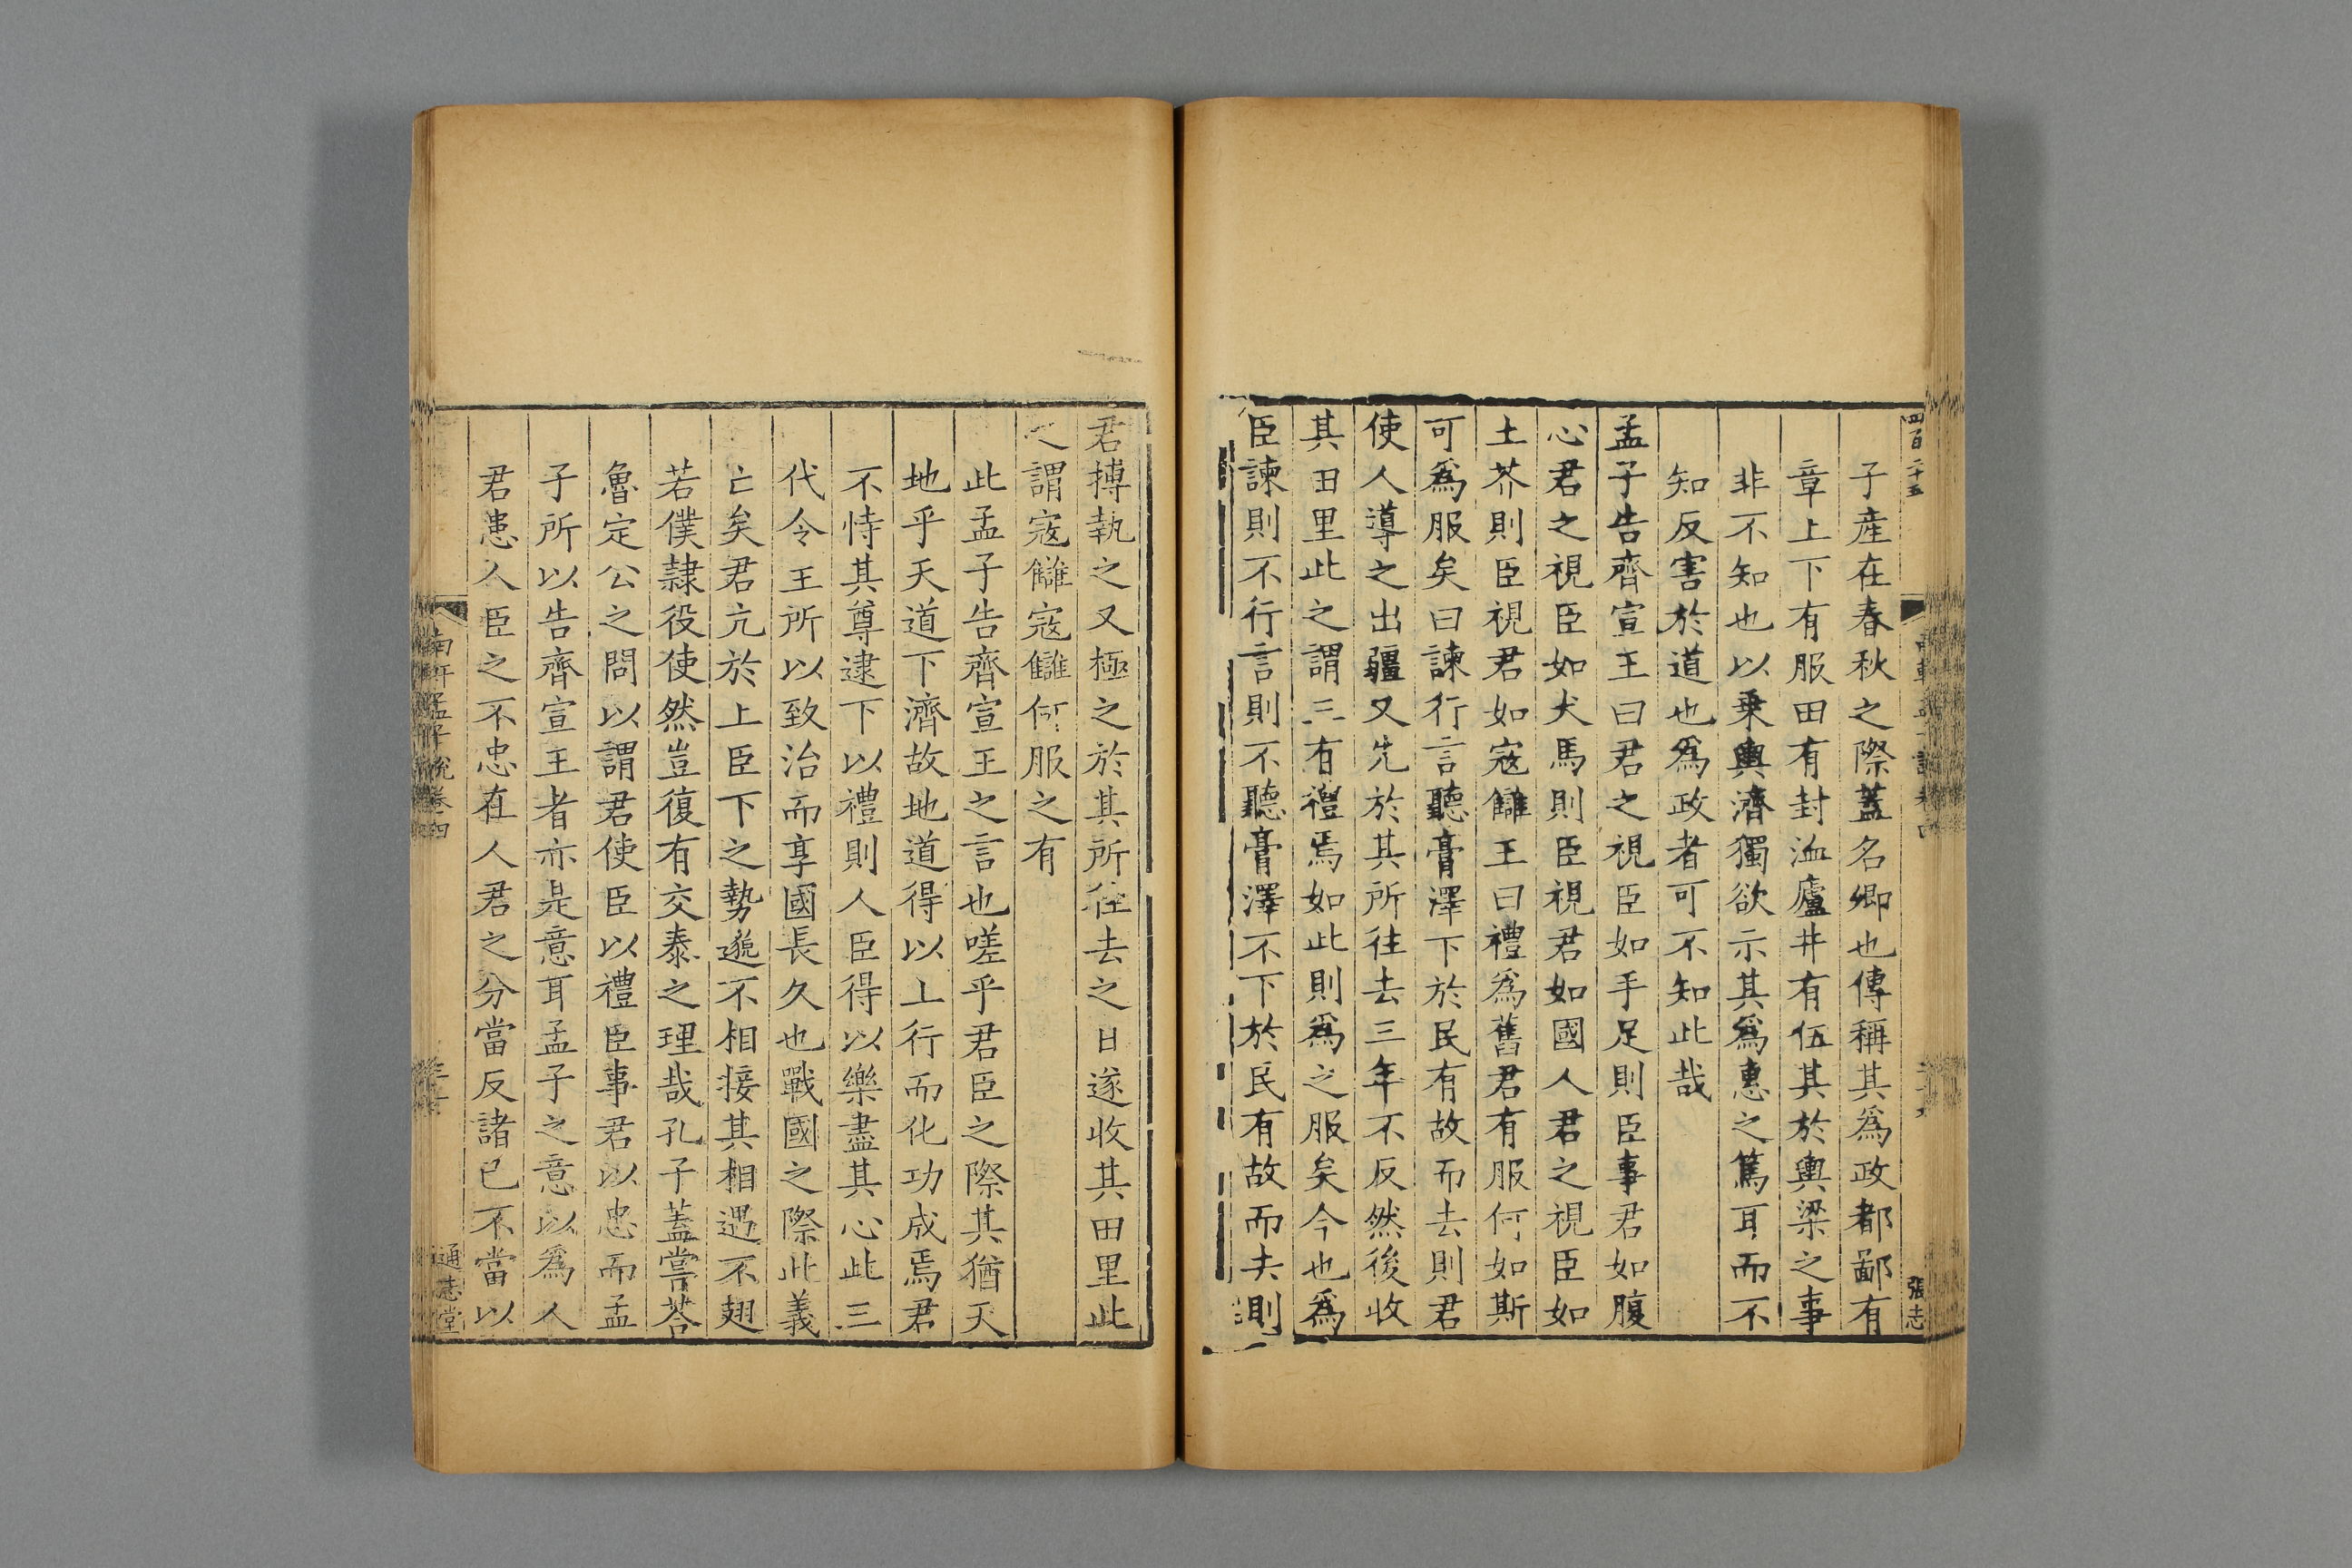 四百二十五
張志
子產在春秋之際蓋名卿也傳稱其爲政都鄙有
章上下有服田有封洫廬井有伍其於輿梁之事
非不知也以乗輿濟獨欲示其爲惠之篤耳而不
知反害於道也爲政者可不知此哉
孟子告齊宣王曰君之視臣如手足則臣事君如腹
心君之視臣如犬馬則臣視君如國人君之視臣如
土芥則臣視君如寇讎王曰禮爲舊君有服何如斯
可爲服矣曰諫行言聽膏澤下於民有故而去則君
使人導之出疆又先於其所往去三年不反然後收
其田里此之謂三有禮焉如此則爲之服矣今也爲
臣諫則不行言則不聽膏澤不下於民有故而去則
君搏執之又極之於其所往去之日遂收其田里此
之謂寇讎寇讎何服之有
此孟子告齊宣王之言也嗟乎君臣之際其猶天
地乎天道下濟故地道得以上行而化功成焉君
不恃其尊逮下以禮則人臣得以樂盡其心此三
代令王所以致治而享國長久也戰國之際此義
亡矣君亢於上臣下之勢邈不相接其相遇不翅
若僕隷役使然豈復有交泰之理哉孔子蓋嘗荅
魯定公之問以謂君使臣以禮臣事君以忠而孟
子所以告齊宣王者亦是意耳孟子之意以爲人
君患人臣之不忠在人君之分當反諸已不當以
南軒孟子說卷四
通志堂